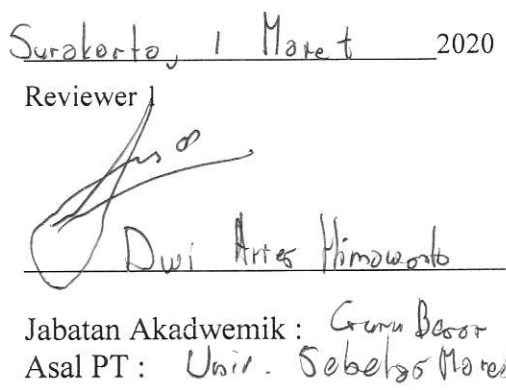 Surakarta, 1 Maret 2020
Reviewer 1
Dwi Aries Himawanto
Jabatan Akadwemik : Guru Besar
Asal PT : Univ. Sebelas Maret